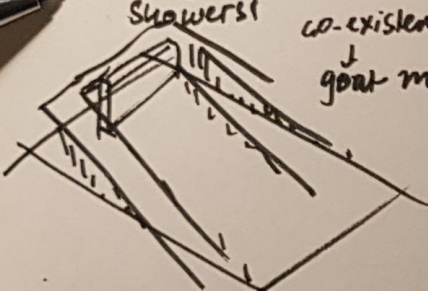 showers!
co-existen
goat m